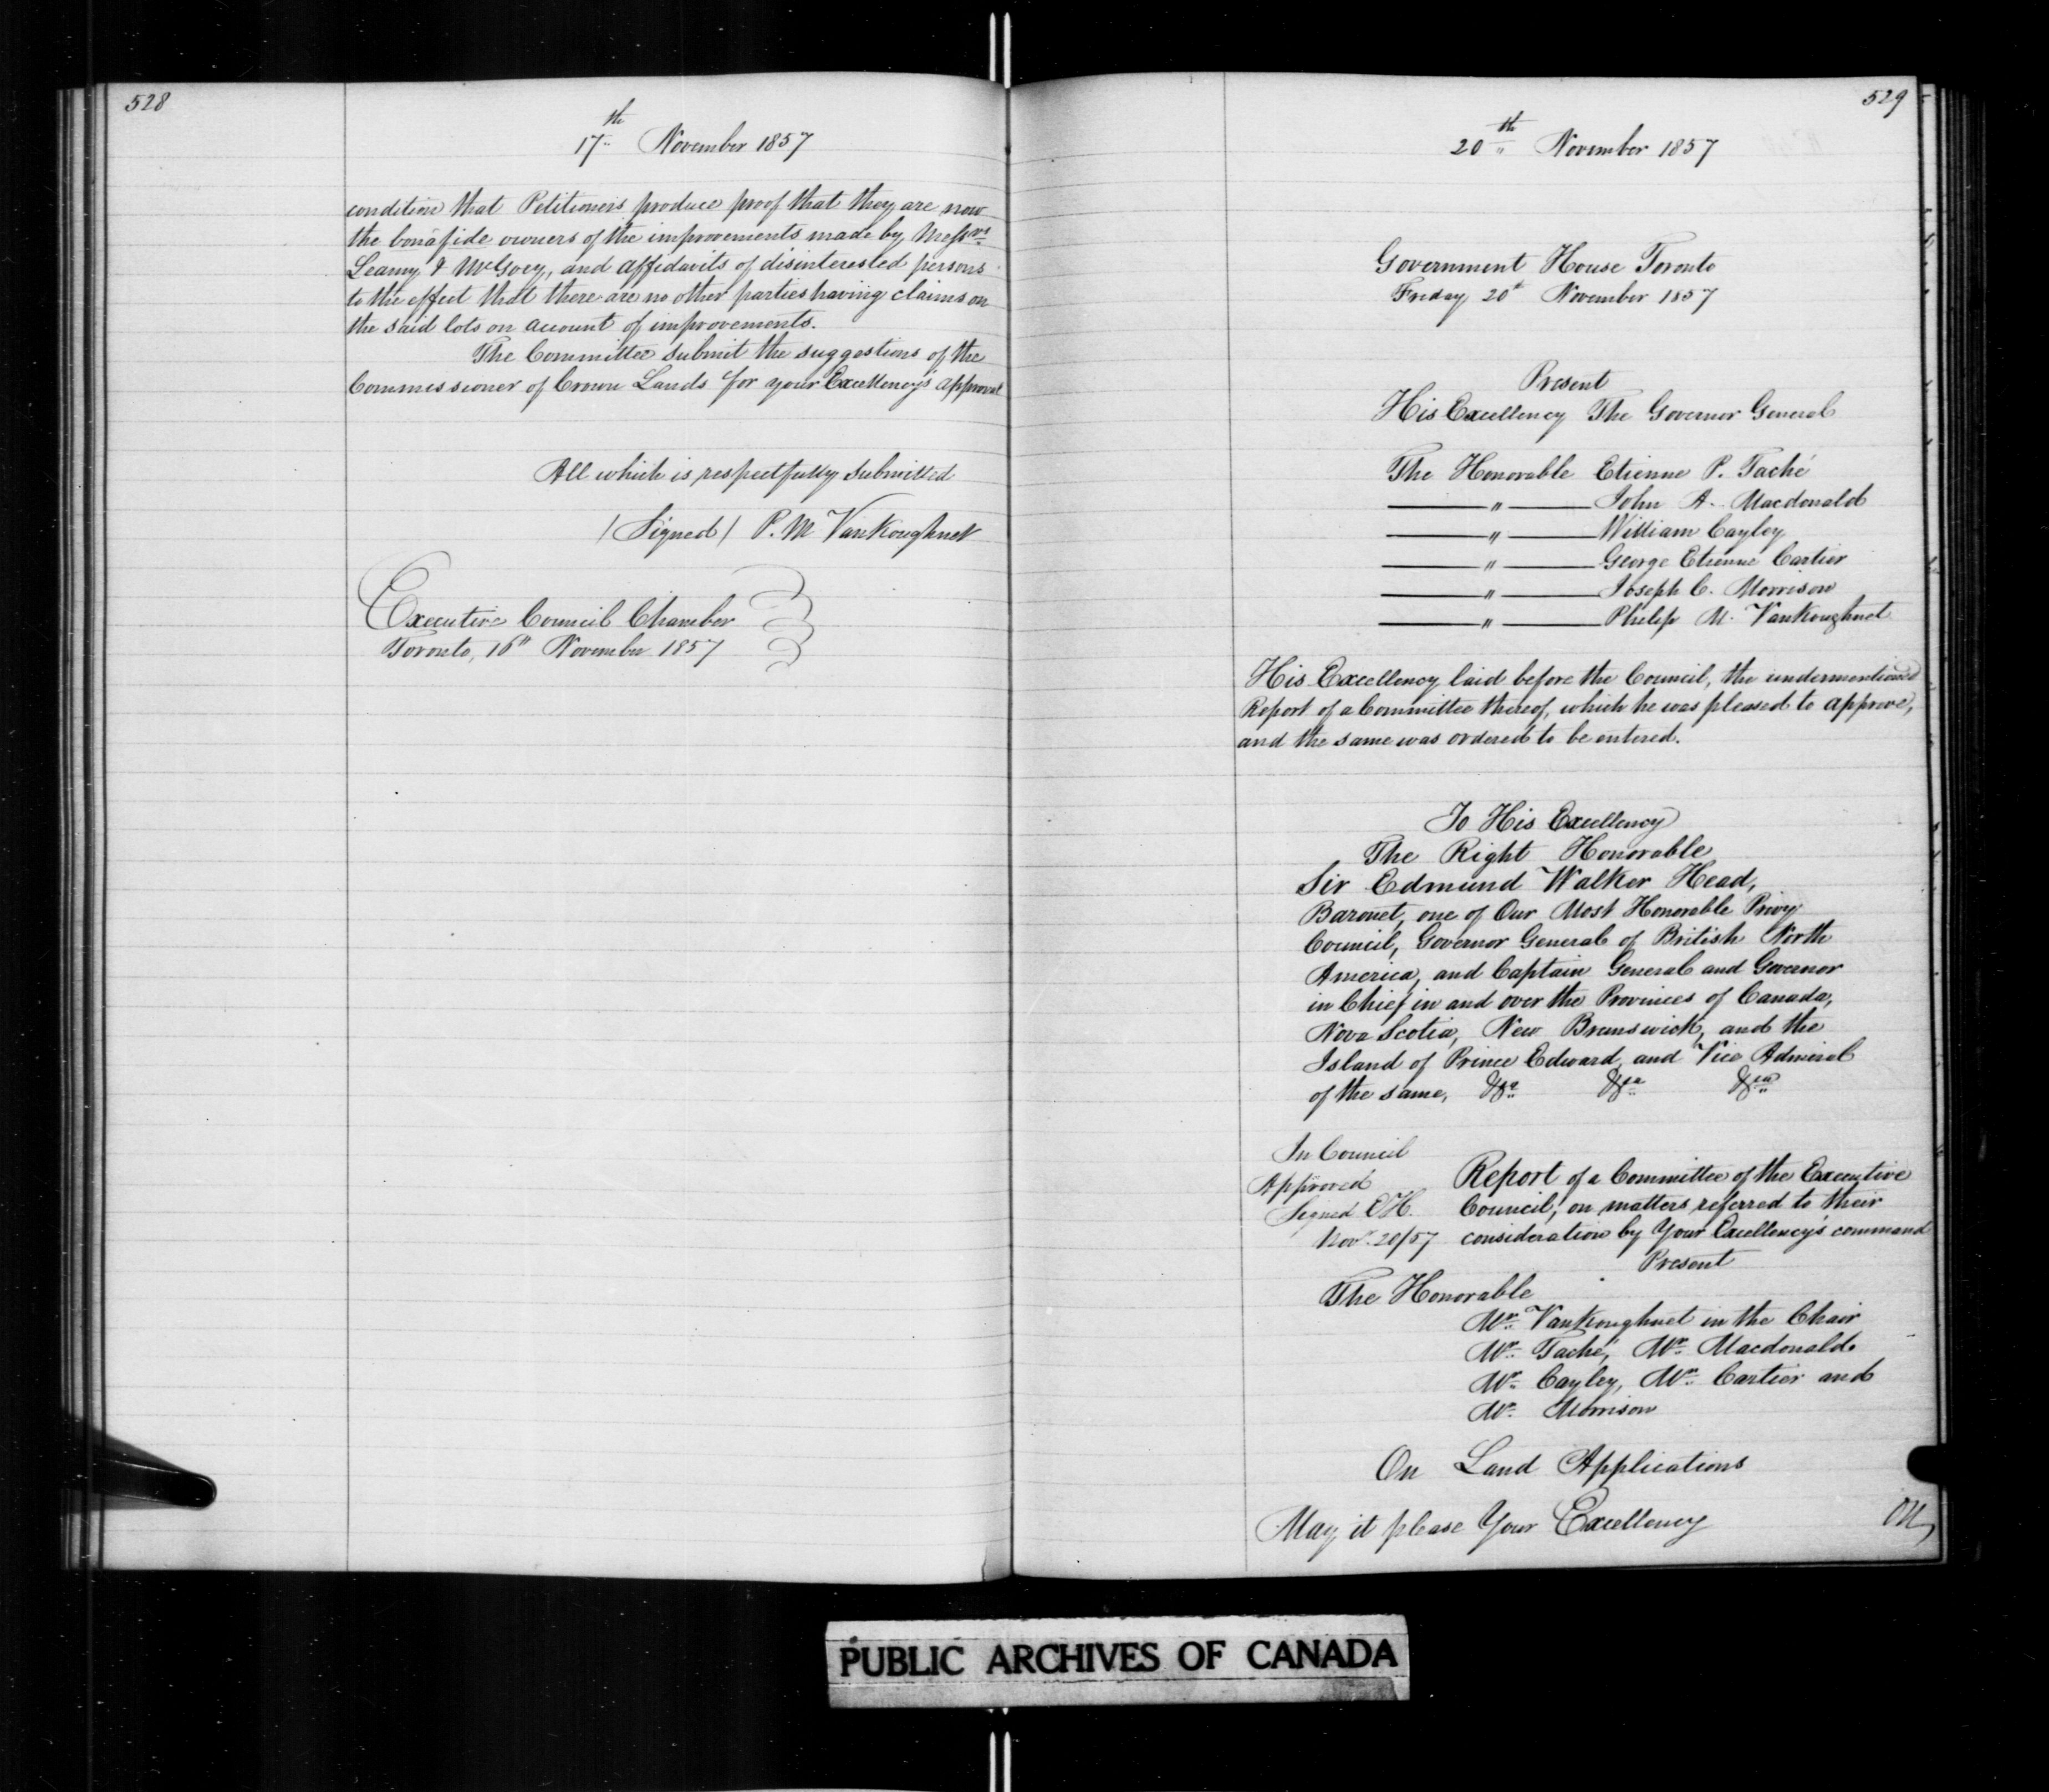 528
17th November 1857
condition that Petitioners produce proof that they are now
the bonafide owners of the improvements made by Messrs
Leamy & McGoey, and affidavits of disinterested persons
to the effect that there are no other parties having claims on
the said lots on account of improvements.
The Committee submit the suggestions of the
Commissioner of Crown Lands for your Excellency's approval
All which is respectfully submitted
(Signed) P. M VanKoughnet
Executive Council Chamber
Toronto, 16th November 1857
529
20th November 1857
Government House Toronto
Friday 20th November 1857
Present
His Excellency The Governor General
The Honorable Etienne P. Taché
" John A. Macdonald
" William Cayley
" George Etienne Cartier
" Joseph C. Morrison
" Philip M. VanKoughnet
His Excellency laid before the Council, the undermentioned
Report of a Committee thereof, which he was pleased to approve,
and the same was ordered to be entered.
To His Excellency
The Right Honorable
Sir Edmund Walker Head,
Baronet, one of Our Most Honorable Privy
Council, Governor General of British North
America, and Captain General and Governor
in Chief in and over the Provinces of Canada,
Nova Scotia, New Brunswick, and the
Island of Prince Edward, and Vice Admiral
of the same, &ca &ca &ca
In Council
Approved
Signed E.H.
Nov. 20/57
Report of a Committee of the Executive
Council, on matters referred to their
consideration by Your Excellency's command
Present
The Honorable
Mr. VanKoughnet in the Chair
Mr. Taché, Mr. Macdonald
Mr. Cayley, Mr. Cartier and
Mr. Morrison
On Land Applications
May it please Your Excellency
On
PUBLIC ARCHIVES OF CANADA